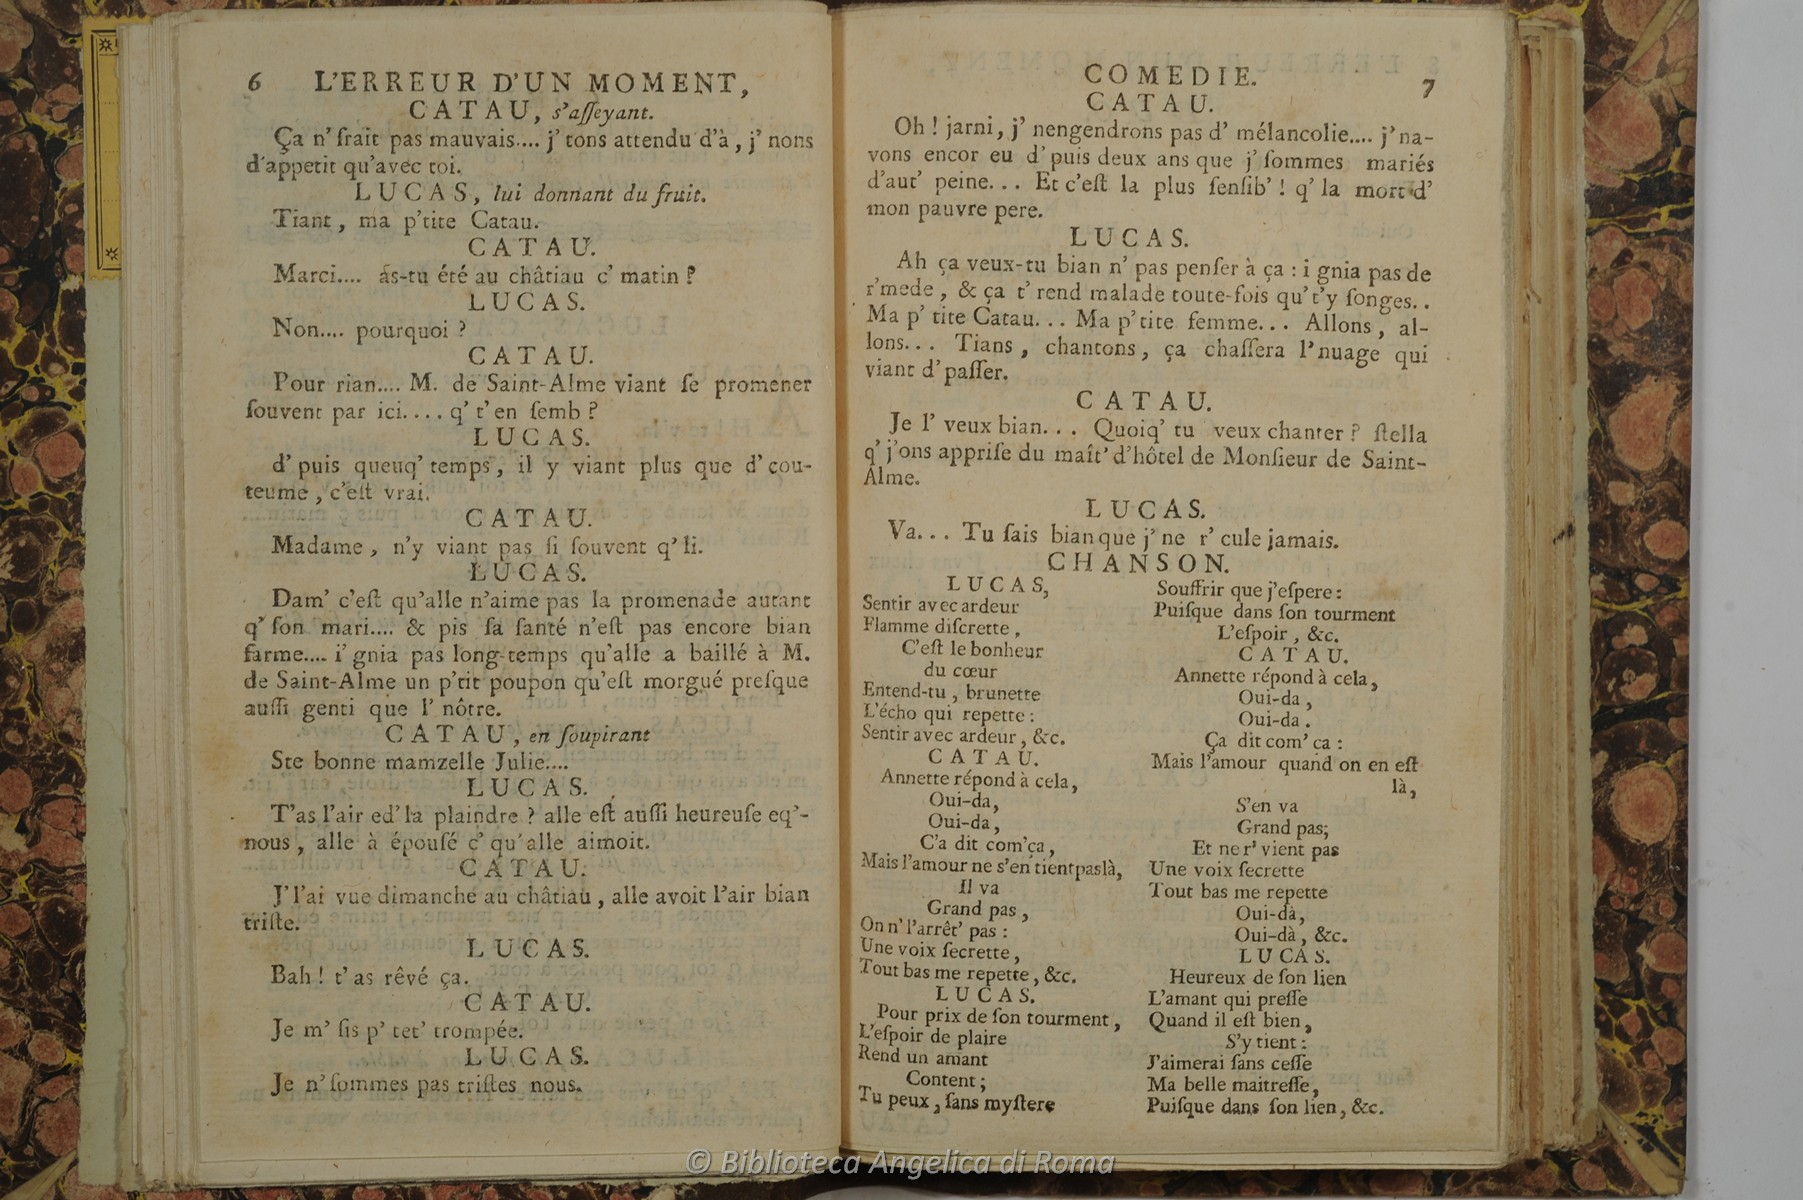 6 L'ERREUR D'UN MOMENT,
CATAU, s'aſſeyant.
Ça n' ſrait pas mauvais.... j' tons attendu d'à, j' nons
d'appetit qu'avec toi.
LUCAS, lui donnant du fruit.
Tiant, ma p'tite Catau.
CATAU.
Marci.... as-tu été au châtiau c' matin ?
LUCAS.
Non.... pourquoi ?
CATAU.
Pour rian.... M. de Saint-Alme viant ſe promener
ſouvent par ici.... q' t'en ſemb ?
LUCAS.
d' puis queuq' temps, il y viant plus que d' cou-
teume, c'eſt vrai.
CATAU.
Madame, n'y viant pas ſi ſouvent q' li.
LUCAS.
Dam' c'eſt qu'alle n'aime pas la promenade autant
q' ſon mari.... & pis ſa ſanté n'eſt pas encore bian
farme.... i' gnia pas long-temps qu'alle a baillé à M.
de Saint-Alme un p'tit poupon qu'eſt morgué preſque
auſſi genti que l' nôtre.
CATAU, en ſoupirant
Ste bonne mamzelle Julie....
LUCAS.
T'as l'air ed' la plaindre ? alle eſt auſſi heureuſe eq'-
nous, alle à épouſé c' qu'alle aimoit.
CATAU.
J' l'ai vue dimanche au châtiau, alle avoit l'air bian
triſte.
LUCAS.
Bah ! t' as rêvé ça.
CATAU.
Je m' ſis p' tet' trompée.
LUCAS.
Je n' ſommes pas triſtes nous.
COMEDIE. 7
CATAU.
Oh ! jarni, j' nengendrons pas d' mélancolie.... j' na-
vons encor eu d' puis deux ans que j' ſommes mariés
d'aut' peine... Et c'eſt la plus ſenſib' ! q' la mort d'
mon pauvre pere.
LUCAS.
Ah ça veux-tu bian n' pas penſer à ça : i gnia pas de
r'mede, & ça t' rend malade toute-fois qu't'y ſonges..
Ma p' tite Catau... Ma p'tite femme... Allons, al-
lons... Tians, chantons, ça chaſſera l'nuage qui
viant d'paſſer.
CATAU.
Je l' veux bian... Quoiq' tu veux chanter ? ſtella
q' j'ons appriſe du maît' d'hôtel de Monſieur de Saint-
Alme.
LUCAS.
Va... Tu ſais bian que j' ne r' cule jamais.
CHANSON.
LUCAS,
Sentir avec ardeur
Flamme diſcrette,
C'eſt le bonheur
du cœur
Entend-tu, brunette
L'écho qui repette :
Sentir avec ardeur, &c.
CATAU.
Annette répond à cela,
Oui-da,
Oui-da,
C'a dit com'ça,
Mais l'amour ne s'en tient pas là,
Il va
Grand pas,
On n' l'arrêt' pas :
Une voix ſecrette,
Tout bas me repette, &c.
LUCAS.
Pour prix de ſon tourment,
L'eſpoir de plaire
Rend un amant
Content ;
Tu peux, ſans myſtere
Souffrir que j'eſpere :
Puiſque dans ſon tourment
L'eſpoir, &c.
CATAU.
Annette répond à cela,
Oui-da,
Oui-da.
Ça dit com' ça :
Mais l'amour quand on en eſt
là,
S'en va
Grand pas;
Et ne r' vient pas
Une voix ſecrette
Tout bas me repette
Oui-dà,
Oui-dà, &c.
LUCAS.
Heureux de ſon lien
L'amant qui preſſe
Quand il eſt bien,
S'y tient :
J'aimerai ſans ceſſe
Ma belle maitreſſe,
Puiſque dans ſon lien, &c.
© Biblioteca Angelica di Roma